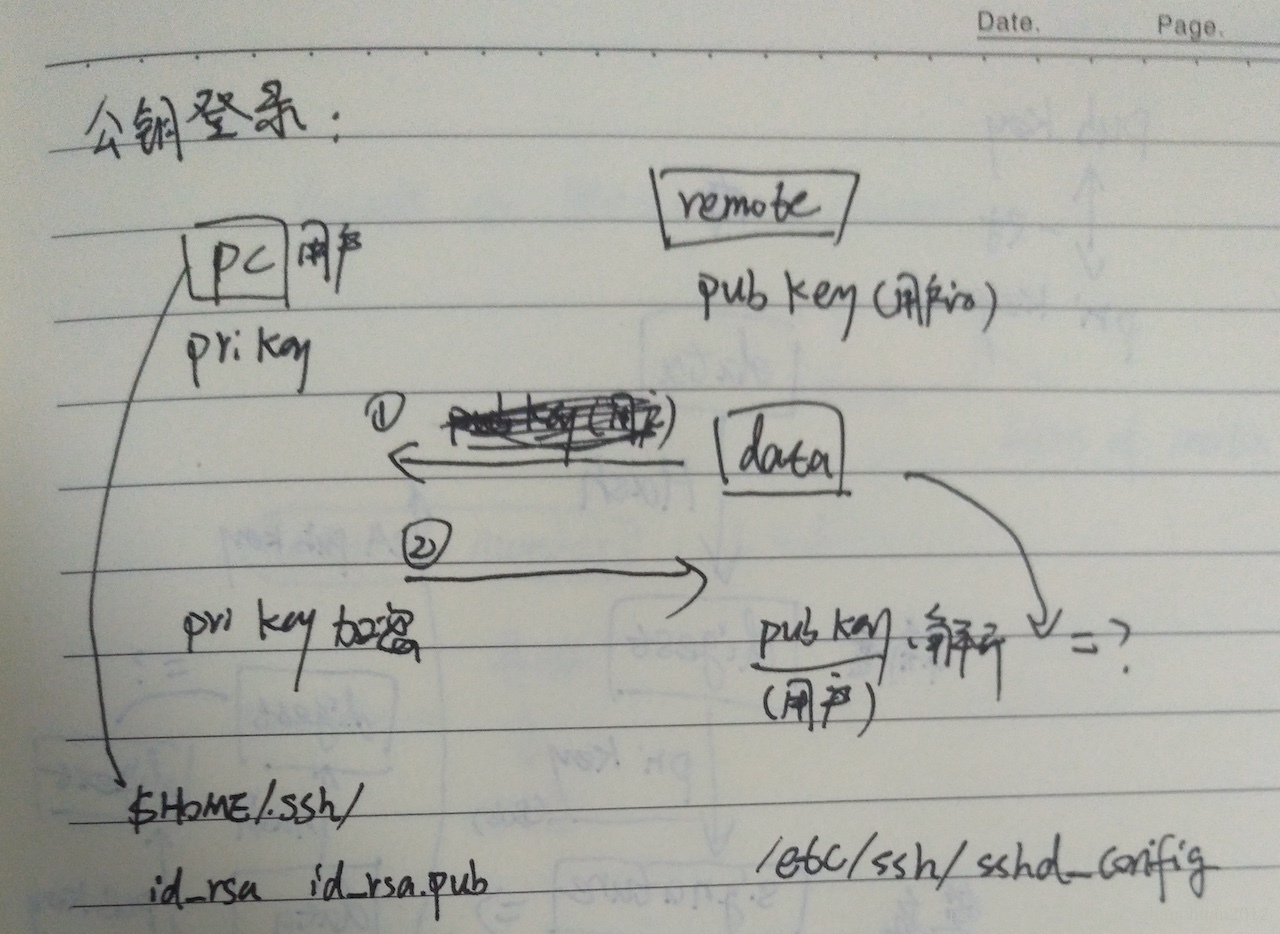 Date. Page.
公钥登录:
remote
PC 用户
pub key (用户)
pri key
①
data
②
pri key 加密
pub key 解密 = ?
(用户)
$HOME/.ssh/
id_rsa id_rsa.pub
/etc/ssh/sshd_config